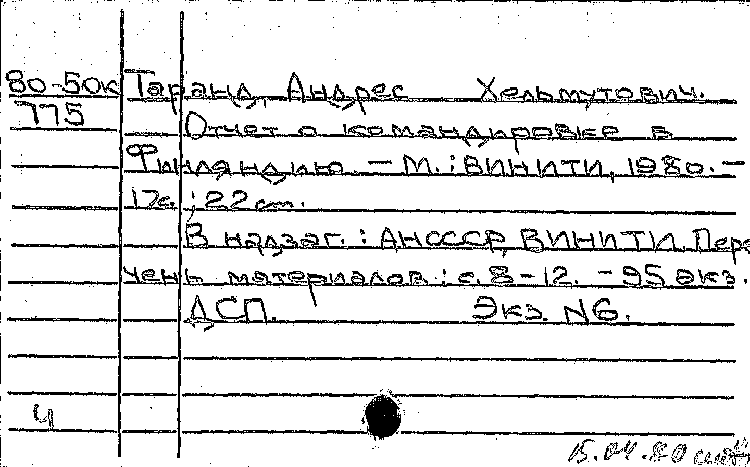 80-50к Таранд, Андрес Хельмутович.
775 Отчет о командировке в
Финляндию. - М. : ВИНИТИ, 1980. -
17с ; 22 cm.
В надзаг. : АНСССР, ВИНИТИ. Пере
чень материалов : с. 8-12. - 95 экз.
ДСП. Экз. N6.
4
15.04.80